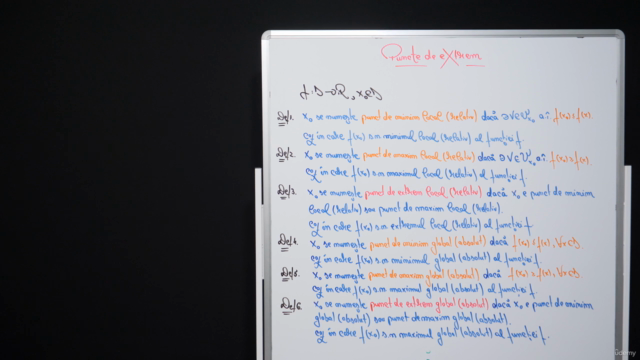 Puncte de extrem
f: D → R, x₀ ∈ D
Def1. x₀ se numește punct de minim local (relativ) dacă ∃ V ∈ 𝒱x₀ a.î. f(x₀) ≤ f(x).
caz în care f(x₀) s.n minimul local (relativ) al funcției f
Def2. x₀ se numește punct de maxim local (relativ) dacă ∃ V ∈ 𝒱x₀ a.î. f(x₀) ≥ f(x).
caz în care f(x₀) s.n maximul local (relativ) al funcției f
Def3. x₀ se numește punct de extrem local (relativ) dacă x₀ e punct de minim
local (relativ) sau punct de maxim local (relativ).
caz în care f(x₀) s.n extremul local (relativ) al funcției f.
Def4. x₀ se numește punct de minim global (absolut) dacă f(x₀) ≤ f(x), ∀x∈D
caz în care f(x₀) s.n minimul global (absolut) al funcției f.
Def5. x₀ se numește punct de maxim global (absolut) dacă f(x₀) ≥ f(x), ∀x∈D
caz în care f(x₀) s.n maximul global (absolut) al funcției f.
Def6. x₀ se numește punct de extrem global (absolut) dacă x₀ e punct de minim
global (absolut) sau punct de maxim global (absolut).
caz în care f(x₀) s.n maximul global (absolut) al funcției f.
Udemy